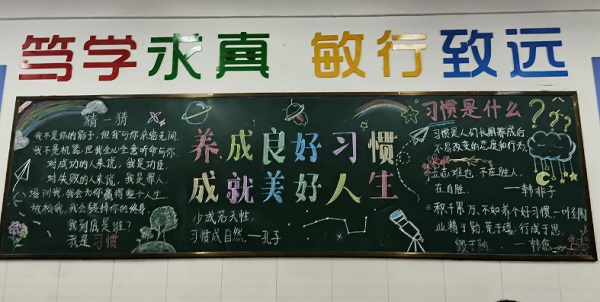 笃学求真 敏行致远
猜一猜
我不是你的影子，但我与你亲密无间
我不是机器，但我全心全意听命与你
对成功的人来说，我是功臣
对失败的人来说，我是罪人
培训我，我会为你赢得整个人生
放松我，我会毁掉你的终身
我到底是谁？
我是习惯
养成良好习惯
成就美好人生
少成若天性，
习惯成自然。—孔子
习惯是什么
习惯是人们长期养成后
不易改变的态度和行为
志之难也，不在胜人，
在自胜。——韩非子
积千累万，不如养个好习惯。—叶圣陶
业精于勤，荒于嬉；行成于思，
毁于随。——韩愈